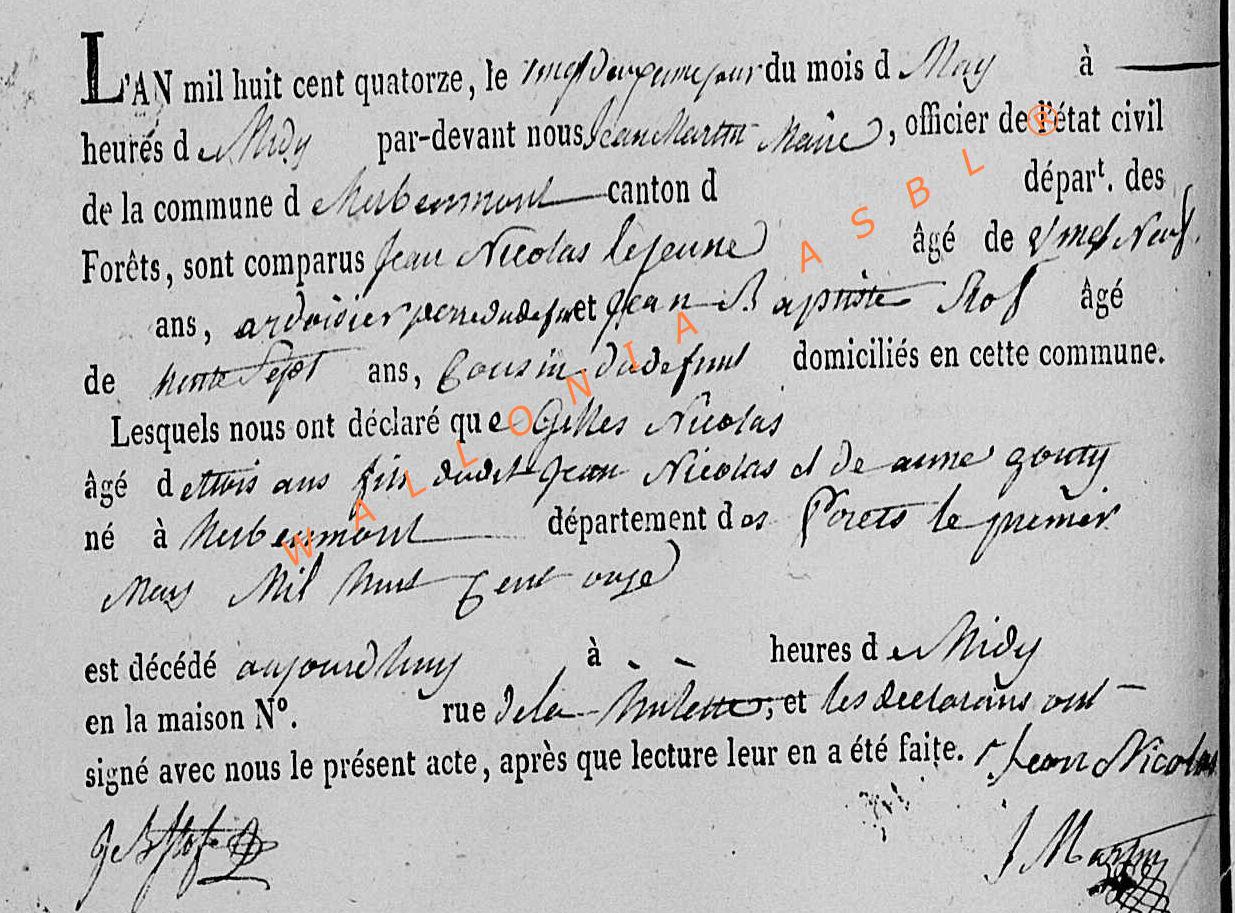 L'AN mil huit cent quatorze, le vingt deuxieme jour du mois d May à
heures d e Midy par-devant nous Jean Martin Maire, officier de l'état civil
de la commune d e Herbeumont canton dépar^t. des
Forêts, sont comparus Jean Nicolas lejeune âgé de vingt Neuf.
ans, ardoisier pere du defunt et Jean Baptiste âgé
de trente Sept ans, Cousin du defunt domiciliés en cette commune.
Lesquels nous ont déclaré que Gilles Nicolas
âgé de trois ans fils dudit Jean Nicolas et de anne gouty
né à Herbeumont département des Forets le premier
Mars Mil huit Cent onze
est décédé aujourdhuy à heures de Midy
en la maison N°. rue de la hulette, et les declarans ont
signé avec nous le présent acte, après que lecture leur en a été faite. Jean Nicolas
J Martin
WALLONIA ASBL ®